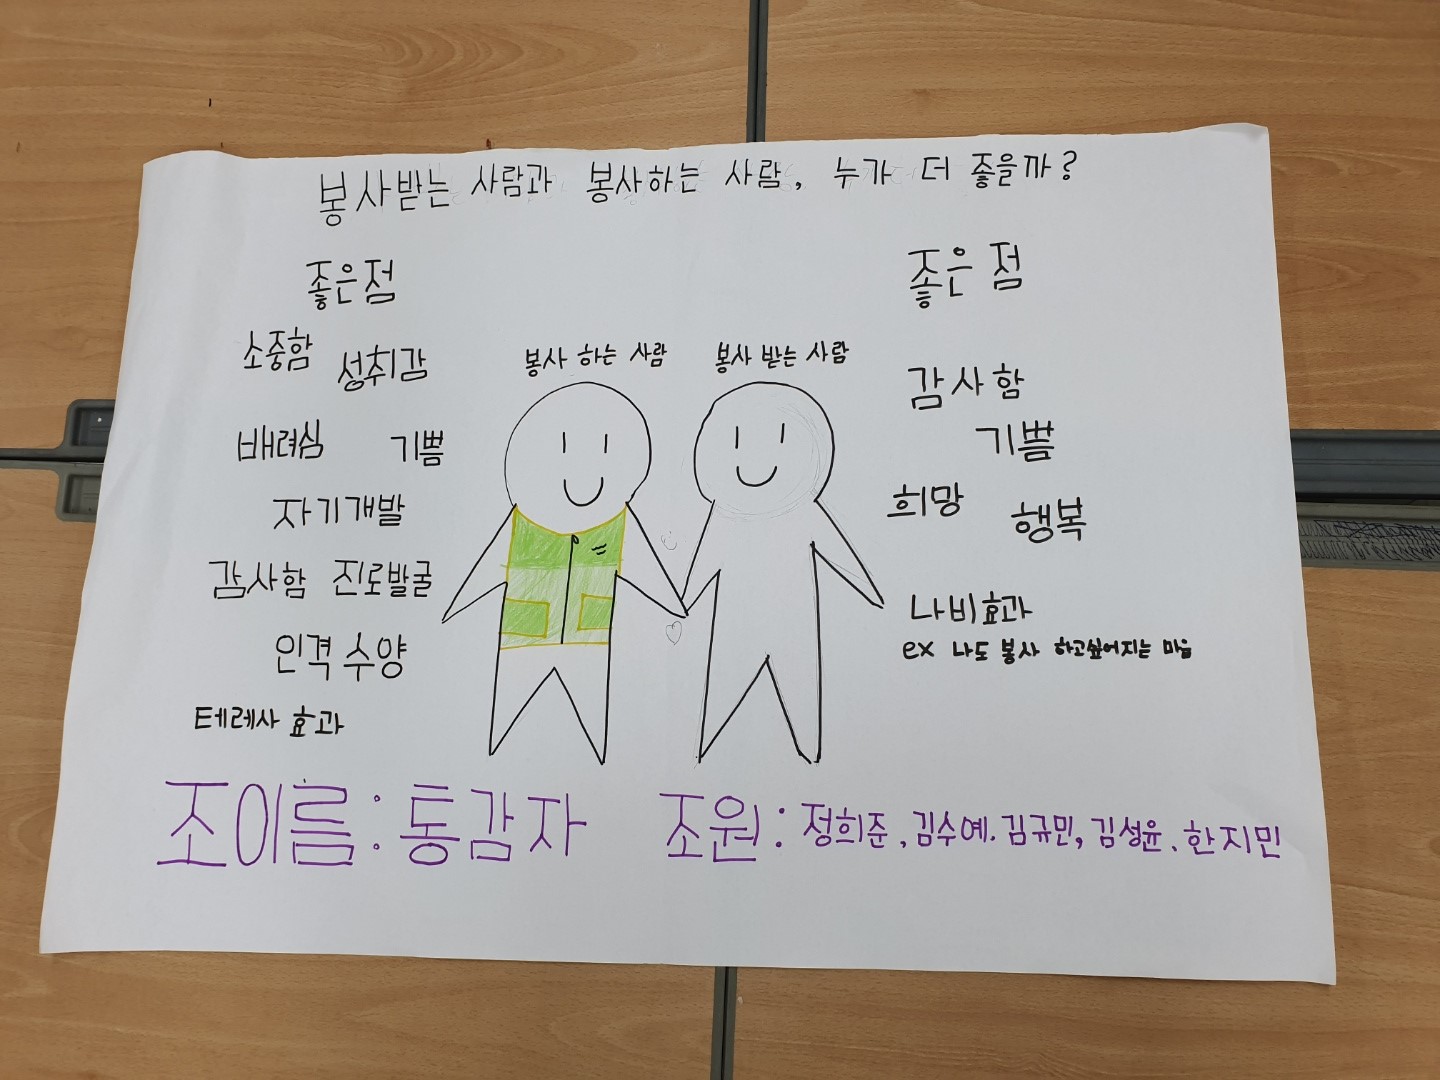 봉사받는 사람과 봉사하는 사람, 누가 더 좋을까?
좋은점
소중함 성취감
배려심 기쁨
자기개발
감사함 진로발굴
인격 수양
테레사 효과
봉사 하는 사람
봉사 받는 사람
좋은 점
감사함
기쁨
희망 행복
나비효과
ex 나도 봉사 하고싶어지는 마음
조이름 : 통감자
조원 : 정희준, 김수예. 김규민, 김성윤. 한지민